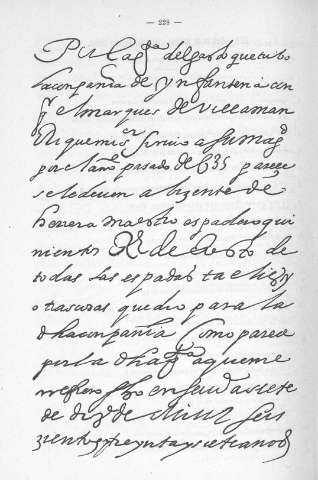 — 228 —
Por la qta del gasto que tubo
la conpañia de ynfanteria con
q el marques de Villaman
Rique mi sr sirvio a su magd
por el año pasado de 635 parece
se le deven a bizente de
herrera maestro espadero qui
nientos Rs de resto de
todas las espadas tahelies y
otras cosas que dio para la
dha conpañia como parece
por la dha qta a que me
refiero fho en siete
de dize de mill seis
zientos y treynta y siete anos